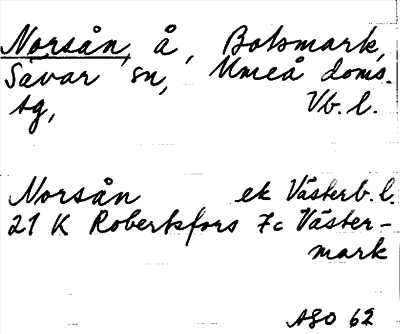 Norsån, å, Botsmark,
Sävar sn, Umeå doms.
tg, Vb. l.
Norsån ek Västerb. l.
21 K Robertsfors 7c Väster-
mark
ASO 62